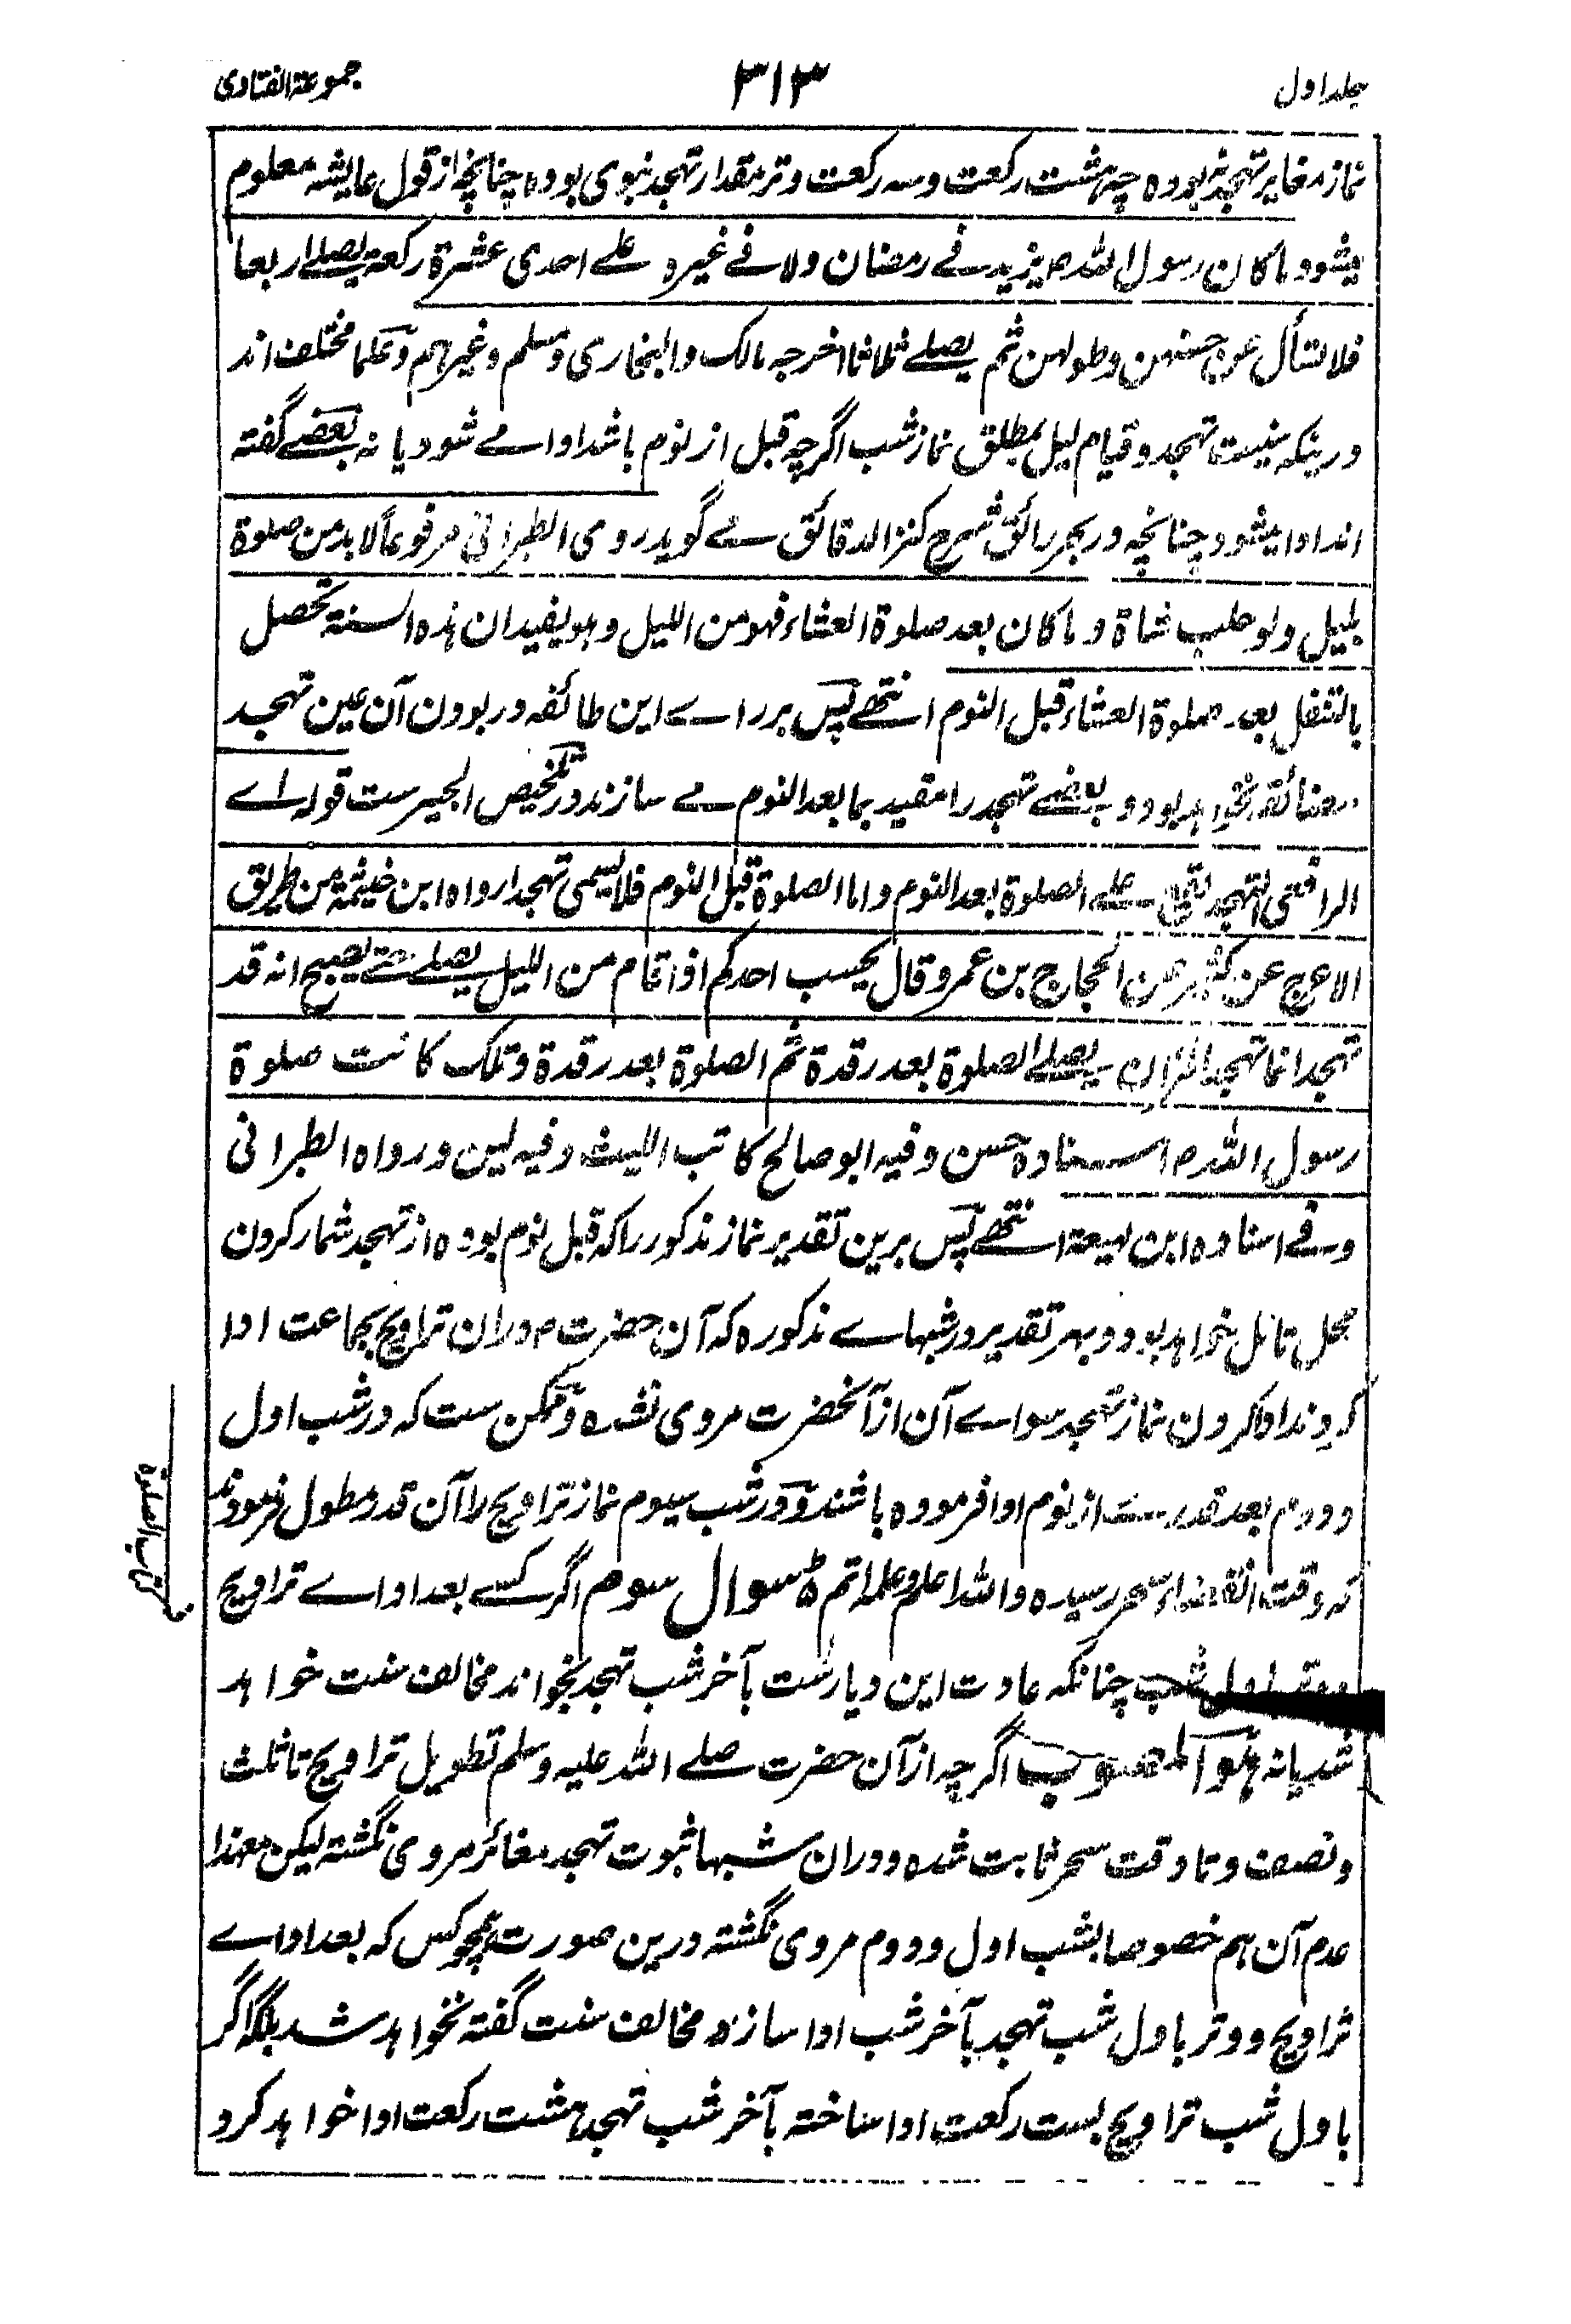 جلد اول
۳۱۳
مجموعۃ الفتاوی
نماز مغایر تہجد نہ بودہ چہ ہشت رکعت وسہ رکعت وتر مقدار تہجد نبوی بودہ چنانچہ از قول عایشہ معلوم
میشود ماکان رسول اللہ ص یزید فے رمضان ولا فے غیرہ علے احدی عشرۃ رکعۃ یصلے اربعا
فلا تسأل عن حسنہن وطولہن ثم یصلے ثلاثا اخرجہ مالک والبخاری ومسلم وغیرہم وعلما مختلف اند
درینکہ سنیت تہجد وقیام لیل بمطلق نماز شب اگرچہ قبل از نوم باشد ادا مے شود یا نہ بعضے گفتہ
اند ادا میشود چنانچہ در بحر رائق شرح کنز الدقائق مے گوید روی الطبرانی مرفوعاً لا بد من صلوۃ
بلیل ولو حلب شاۃ وماکان بعد صلوۃ العشاء فہو من اللیل وہو یفید ان ہذہ السنۃ تحصل
بالتنفل بعد صلوۃ العشاء قبل النوم انتہے پس بررائے این طائفہ دربودن آن عین تہجد
مضائقہ نخواہد بود وبعضے تہجد را مقید بما بعد النوم مے سازند در تلخیص الحبیرست قولہ اے
الرافعی التہجد یقع علے الصلوۃ بعد النوم واما الصلوۃ قبل النوم فلا یسمی تہجدا رواہ ابن خیثمۃ من طریق
الاعرج عن کثیر عن الحجاج بن عمرو قال یحسب احدکم اذا قام من اللیل یصلے حتے یصبح انہ قد
تہجد انما تہجد المرء ان یصلے الصلوۃ بعد رقدۃ ثم الصلوۃ بعد رقدۃ وتلک کانت صلوۃ
رسول اللہ ص اسنادہ حسن وفیہ ابو صالح کاتب اللیث وفیہ لین ورواہ الطبرانی
وفے اسنادہ ابن لہیعۃ انتہے پس برین تقدیر نماز مذکور را کہ قبل نوم بودہ از تہجد شمار کردن
محل تامل خواہد بود وبہر تقدیر در شبہاے مذکورہ کہ آن حضرت ص دران تراویح بجماعت ادا
کردند ادا کردن نماز تہجد سواے آن از آنحضرت مروی نشدہ وممکن ست کہ در شب اول
ودوم بعد قدرے از نوم ادا فرمودہ باشند ودر شب سیوم نماز تراویح را آن قدر مطول فرمودند
کہ وقت انقضاء سحر رسیدہ واللہ اعلم وعلمہ اتم سوال سوم اگر کسے بعد اداے تراویح
ووتر باول شب چنانکہ عادت این دیارست بآخر شب تہجد بخواند مخالف سنت خواہد
شد یانہ ہو المصوب اگرچہ از آن حضرت صلے اللہ علیہ وسلم تطویل تراویح تا ثلث
ونصف وتا وقت سحر ثابت شدہ ودران شبہا ثبوت تہجد مغائر مروی نگشتہ لیکن معہذا
عدم آن ہم خصوصا بشب اول ودوم مروی نگشتہ درین صورت ہیچو کس کہ بعد اداے
تراویح ووتر باول شب تہجد بآخر شب ادا سازد مخالف سنت گفتہ نخواہد شد بلکہ اگر
باول شب تراویح بست رکعت ادا ساختہ بآخر شب تہجد ہشت رکعت ادا خواہد کرد
کتاب الصلوۃ